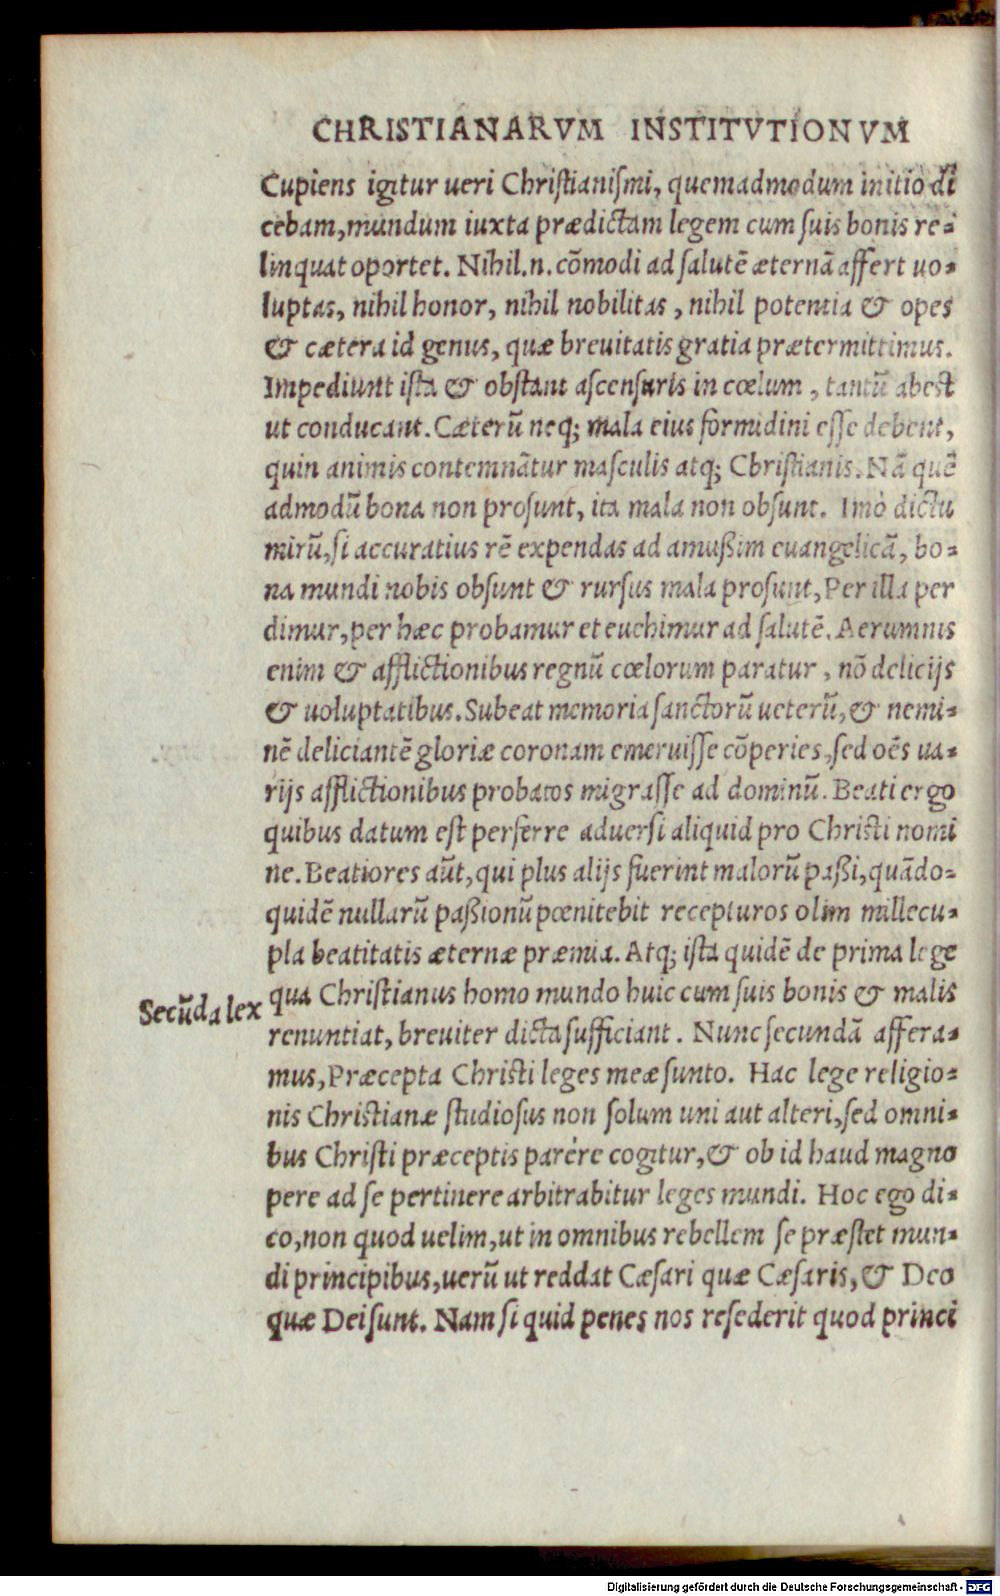 CHRISTIANARVM INSTITVTIONVM
Cupiens igitur ueri Christianismi, quemadmodum initio di
cebam, mundum iuxta prædictam legem cum suis bonis re-
linquat oportet. Nihil.n. cõmodi ad salutẽ æternã affert uo-
luptas, nihil honor, nihil nobilitas, nihil potentia & opes
& cætera id genus, quæ breuitatis gratia prætermittimus.
Impediunt ista & obstant ascensuris in cœlum, tantũ abest
ut conducant. Cæterũ neq; mala eius formidini esse debent,
quin animis contemnãtur masculis atq; Christianis. Nã quẽ
admodũ bona non prosunt, ita mala non obsunt. Imò dictu
mirũ, si accuratius rẽ expendas ad amußim euangelicã, bo-
na mundi nobis obsunt & rursus mala prosunt, Per illa per
dimur, per hæc probamur et euehimur ad salutẽ. Aerumnis
enim & afflictionibus regnũ cœlorum paratur, nõ delicijs
& uoluptatibus. Subeat memoria sanctorũ ueterũ, & nemi-
nẽ deliciantẽ gloriæ coronam emeruisse cõperies, sed oẽs ua-
rijs afflictionibus probatos migrasse ad dominũ. Beati ergo
quibus datum est perferre aduersi aliquid pro Christi nomi
ne. Beatiores aũt, qui plus alijs fuerint malorũ paßi, quãdo-
quidẽ nullarũ paßionũ pœnitebit recepturos olim millecu-
pla beatitatis æternæ præmia. Atq; ista quidẽ de prima lege
qua Christianus homo mundo huic cum suis bonis & malis
Secũda lex
renuntiat, breuiter dicta sufficiant. Nunc secundã affera-
mus, Præcepta Christi leges meæ sunto. Hac lege religio-
nis Christianæ studiosus non solum uni aut alteri, sed omni-
bus Christi præceptis parére cogitur, & ob id haud magno
pere ad se pertinere arbitrabitur leges mundi. Hoc ego di-
co, non quod uelim, ut in omnibus rebellem se præstet mun-
di principibus, uerũ ut reddat Cæsari quæ Cæsaris, & Deo
quæ Dei sunt. Nam si quid penes nos resederit quod princi
Digitalisierung gefördert durch die Deutsche Forschungsgemeinschaft - DFG